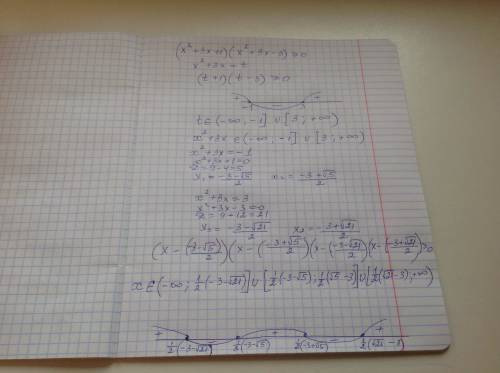 (x²+3x+1)(x²+3x-3)≥0
x²+3x=t
(t+1)(t-3)≥0
+ - +
-1 3
t∈(-∞;-1]∪[3;+∞)
x²+3x∈(-∞;-1]∪[3;+∞)
x²+3x=-1
x²+3x+1=0
D=9-4=5
x₁=(-3-√5)/2 x₂=(-3+√5)/2
x²+3x=3
x²+3x-3=0
D=9+12=21
x₃=(-3-√21)/2 x₄=(-3+√21)/2
(x-((-3-√5)/2))(x-((-3+√5)/2))(x-((-3-√21)/2))(x-((-3+√21)/2))≥0
x∈(-∞;½(-3-√21)]∪[½(-3-√5);½(√5-3)]∪[½(√21-3);+∞)
+ - + - +
½(-3-√21) ½(-3-√5) ½(-3+√5) ½(√21-3)